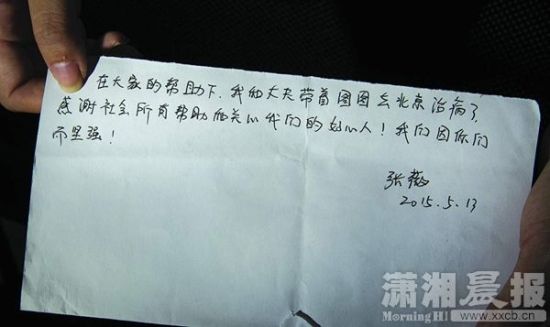 在大家的帮助下，我和丈夫带着图图去北京治病了，
感谢社会所有帮助和关心我们的好心人！我们因你们
而坚强！
张薇
2015.5.13
潇湘晨报
Morning H
www.xxcb.cn